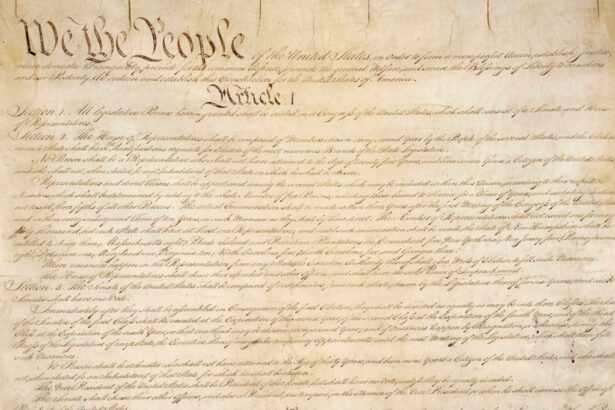 We the People of the United States, in Order to form a more perfect Union, establish Justice,
insure domestic Tranquility, provide for the common defence, promote the general Welfare, and secure the Blessings of Liberty to ourselves
and our Posterity, do ordain and establish this Constitution for the United States of America.
Article. I.
Section. 1. All legislative Powers herein granted shall be vested in a Congress of the United States, which shall consist of a Senate and House
of Representatives.
Section. 2. The House of Representatives shall be composed of Members chosen every second Year by the People of the several States, and the
in each State shall have Qualifications requisite for Electors of the most numerous Branch of the State Legislature.
No Person shall be a Representative who shall not have attained to the Age of twenty five Years, and been seven Years a Citizen of the United
and who shall not, when elected, be an Inhabitant of that State in which he shall be chosen.
Representatives and direct Taxes shall be apportioned among the several States which may be included within this Union, according to their respective
Numbers, which shall be determined by adding to the whole Number of free Persons, including those bound to Service for a Term of Years, and excluding Indians
not taxed, three fifths of all other Persons. The actual Enumeration shall be made within three Years after the first Meeting of the Congress of the United
and within every subsequent Term of ten Years, in such Manner as they shall by Law direct. The Number of Representatives shall not exceed one for every
thirty Thousand, but each State shall have at Least one Representative; and until such enumeration shall be made, the State of New Hampshire shall be
entitled to chuse three, Massachusetts eight, Rhode Island and Providence Plantations one, Connecticut five, New York six, New Jersey four, Pennsylvania
eight, Delaware one, Maryland six, Virginia ten, North Carolina five, South Carolina five, and Georgia three.
When vacancies happen in the Representation from any State, the Executive Authority thereof shall issue Writs of Election to fill such Vacancies.
The House of Representatives shall chuse their Speaker and other Officers; and shall have the sole Power of Impeachment.
Section. 3. The Senate of the United States shall be composed of two Senators from each State, chosen by the Legislature thereof, for six Years; and each
Senator shall have one Vote.
Immediately after they shall be assembled in Consequence of the first Election, they shall be divided as equally as may be into three Classes. The
of the Senators of the first Class shall be vacated at the Expiration of the second Year, of the second Class at the Expiration of the fourth Year, and of the third
Class at the Expiration of the sixth Year, so that one third may be chosen every second Year; and if Vacancies happen by Resignation, or otherwise, during the
Recess of the Legislature of any State, the Executive thereof may make temporary Appointments until the next Meeting of the Legislature, which shall then fill
such Vacancies.
No Person shall be a Senator who shall not have attained to the Age of thirty Years, and been nine Years a Citizen of the United States, and who shall
not, when elected, be an Inhabitant of that State for which he shall be chosen.
The Vice President of the United States shall be President of the Senate, but shall have no Vote, unless they be equally divided.
The Senate shall chuse their other Officers, and also a President pro tempore, in the Absence of the Vice President, or when he shall exercise the Office of
United States.